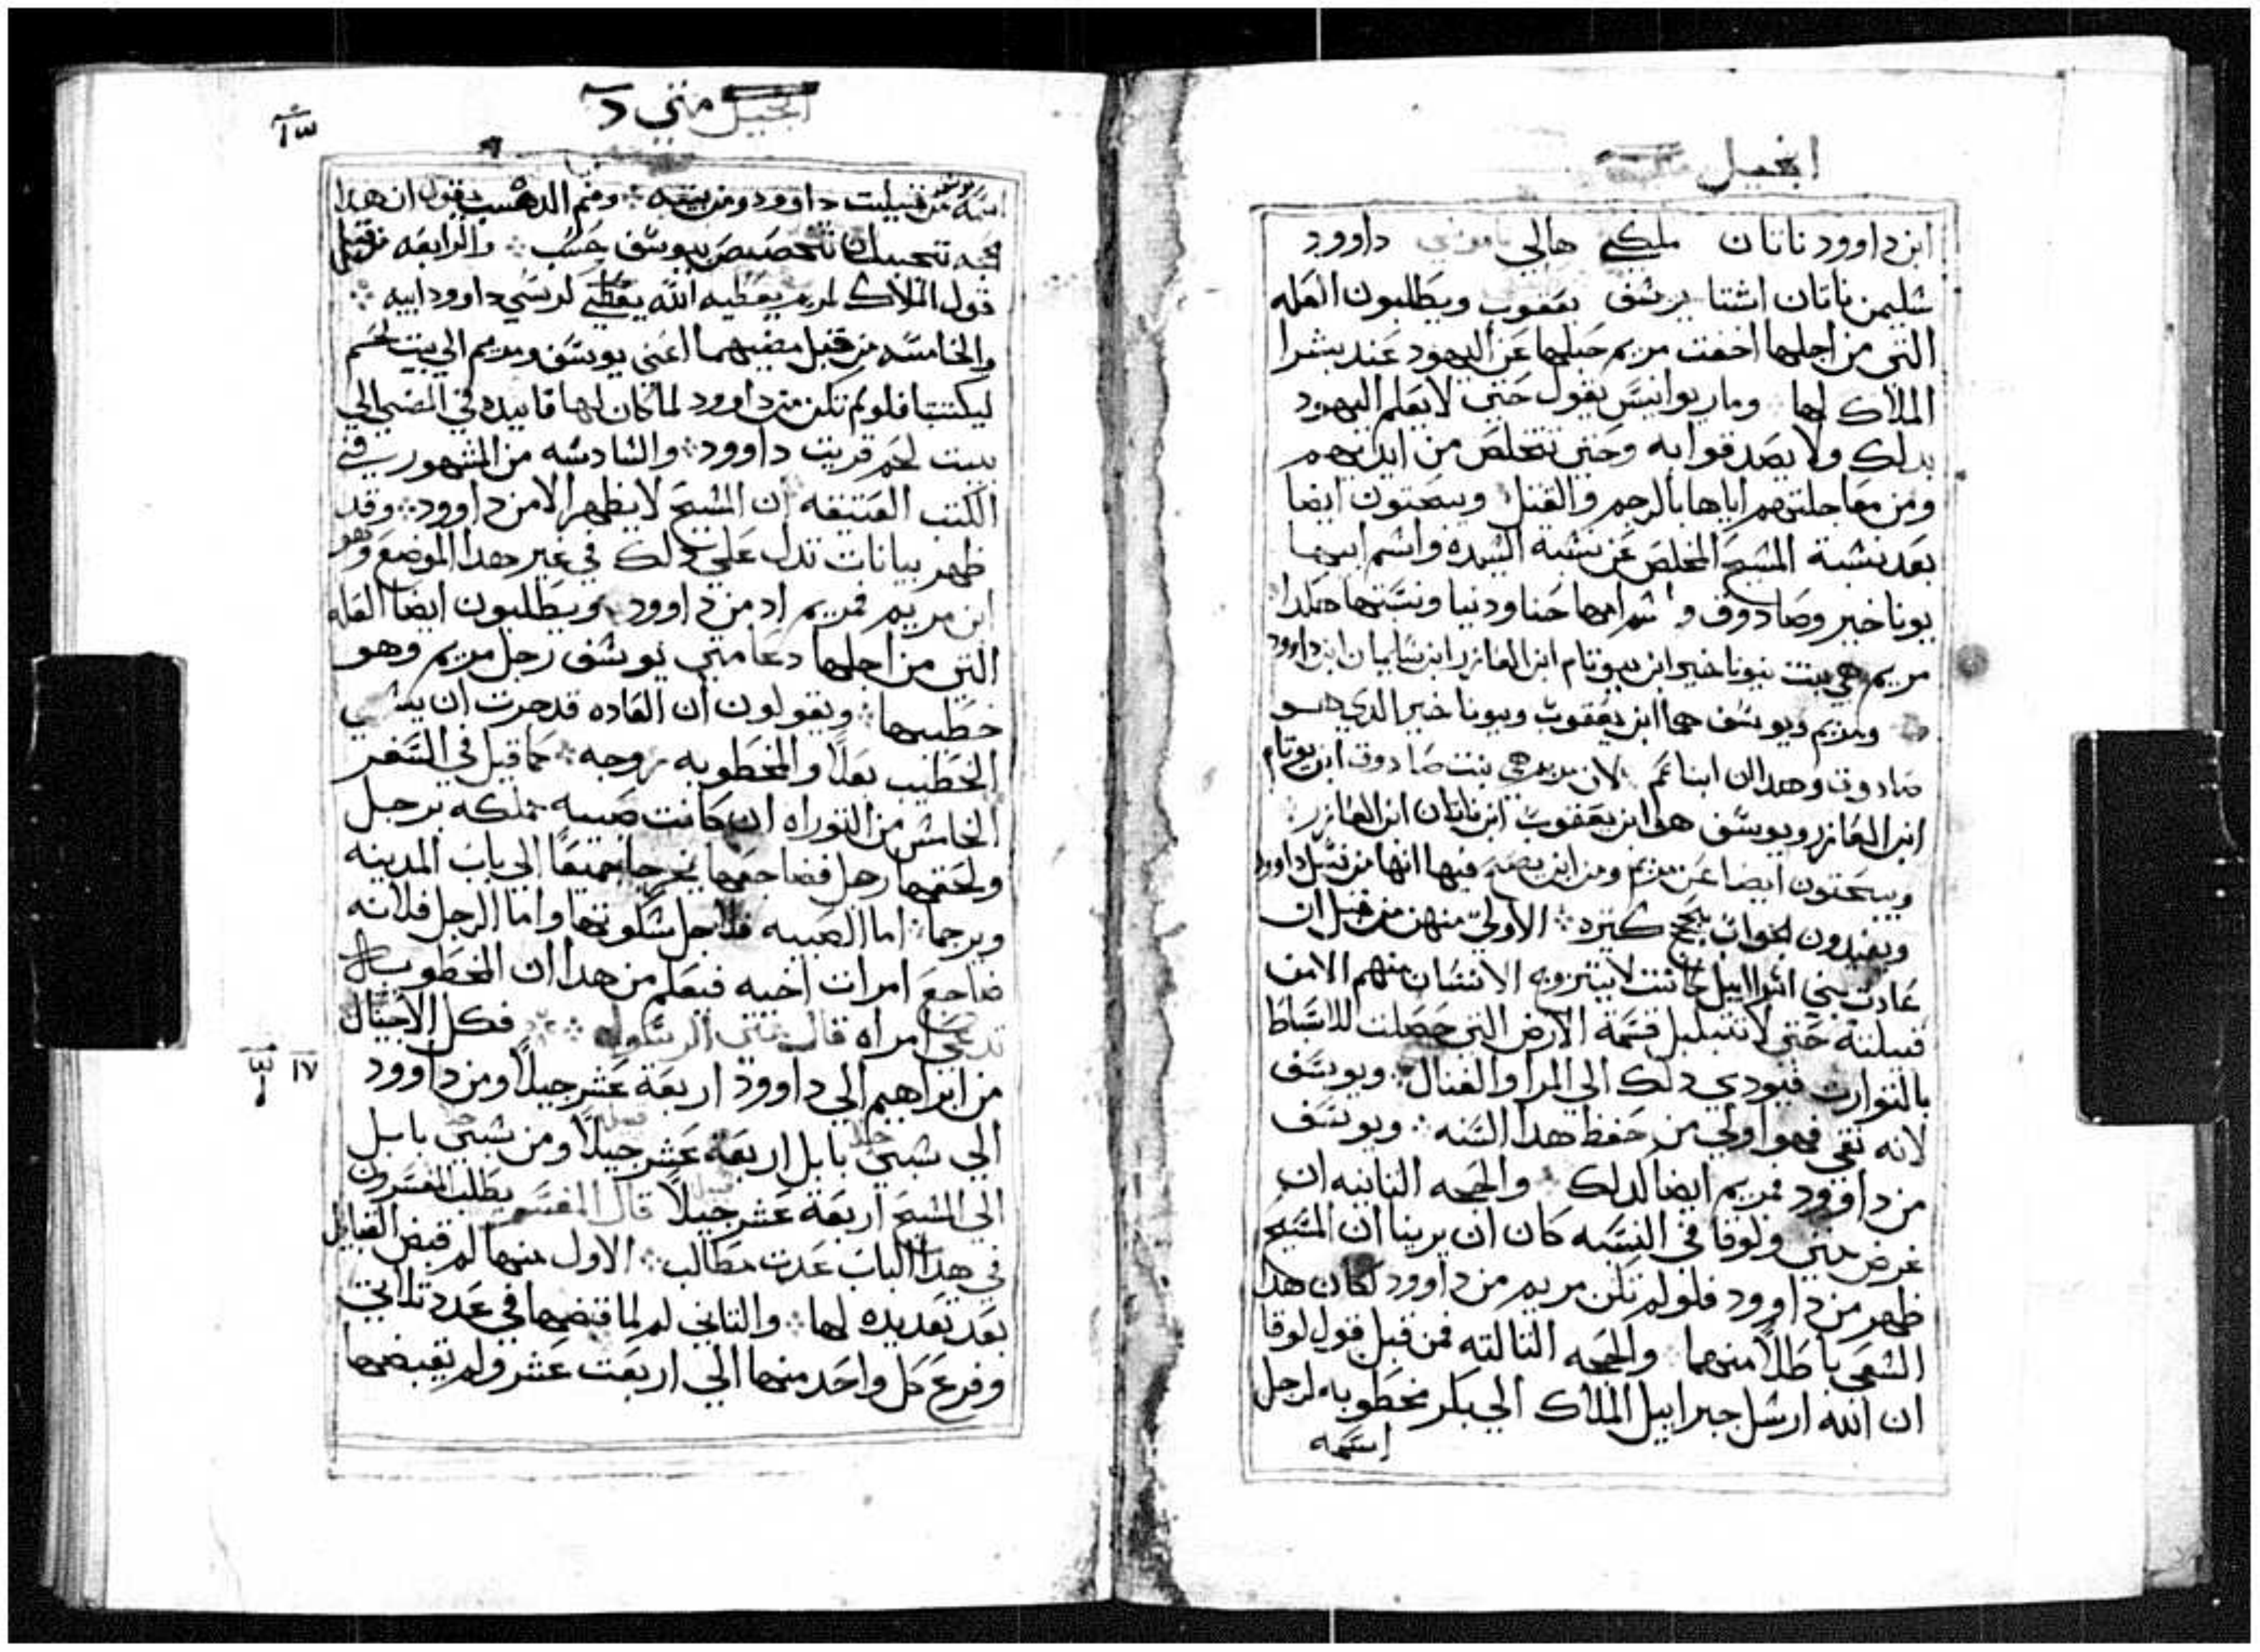 انجيل
ابن داوود ناتان ملكي هالي داوود
شليمن ناتان اشتا يوشف يعقوب ويطلبون العله
التي من اجلها اخفت مريم حبلها عن اليهود عند بشرا
الملاك لها وماريوانيس يقول حتي لا يعلم اليهود
بدلك ولا يصدقوا به وحتي تتخلص من ايديهم
ومن معاجلتهم اياها بالرجم والقتل ويبحتون ايضا
بعد نشبة المشيح المخلص عن نشبة الشيده واشم ابيها
يوناخير وصادوق واشم امها حنا ودنيا ونسبتها هكدا
مريم هي بنت يوناخير ابن يوتام ابن العازر ابن سليمان ابن داوود
ومريم ويوسف هما ابن يعقوب ويوناخير الدي هو
صادوق وهدان ابنا عم لان مريم هي بنت صادوق ابن يوتام
ابن العازر ويوسف هو ابن يعقوب ابن ماتان ابن العازر
ويبحتون ايضا عن مريم ومن اين يصح فيها انها من نسل داوود
ويفيدون الجواب بحجج كتيره الاولي منهن من قبل ان
عادت بني اشراييل كانت لا يتزوج الانشان منهم الا من
قبيلته حتي لا تتبلبل قسمة الارض التي حصلت للاسباط
بالتوارت فيودي دلك الي المرا والقتال ويوسف
لانه تقي فهو اولي من حفظ هدا السنه ويوسف
من داوود فمريم ايضا لدلك والحجه التانيه ان
غرض متي ولوقا في النسبه كان ان يرينا ان المسيح
ظهر من داوود فلو لم تكن مريم من داوود لكان هدا
الشعي باطلاً منهما والحجه التالته فمن قبل قول لوقا
ان الله ارشل جبراييل الملاك الي بكر مخطوبه لرجل
اسمه
انجيل متي د
١٣
اسمه يوسف من قبيلت داوود ومن بيته ومتم الدهب يقول ان هدا
حجه تحسبان تخصيص يوشف حسب والرابعه من قبل
قول الملاك لمريم يعطيه الله يعطي كرسي داوود ابيه
والخامسه من قبل مضيهما اعني يوسف ومريم الي بيت لحم
ليكتتبا فلو لم تكن من داوود لما كان لها فايده في المضي الي
بيت لحم قريت داوود والشادشه من المشهور في
الكتب العتيقه ان المشيح لا يظهر الا من داوود وقد
ظهر بيانات تدل علي دلك في غير هدا الموضع وهو
ابن مريم فمريم اد من داوود ويطلبون ايضا العله
التي من اجلها دعا متي يوشف رجل مريم وهو
خطيبها ويقولون ان العاده قد جرت ان يشمي
الخطيب بعلا والمخطوبه زوجه كما قيل في السفر
الخامش من التوراه ان كانت صبيه مملكه برجل
ولحقها رجل فضاجعها يخرجا جميعًا الي باب المدينه
ويرجما اما الصبيه فلاجل شكوتها واما الرجل فلانه
ضاجع امرات اخيه فيعلم من هدا ان المخطوبه
تدعي امراه قال متي الرسول فكل الاجيال
من ابراهيم الي داوود اربعة عشر جيلاً ومن داوود
الي شبي بابل اربعة عشر جيلاً ومن شبي بابل
الي المشيح اربعة عشر جيلاً قال المفسر يطلب المفسرون
في هدا الباب عدت مطالب الاول منها لم قبض القبايل
بعد تعديده لها والتاني لم لما قبضها في عدد تلاتي
وفرع كل واحد منها الي اربعت عشر ولم يقبضها
١٧